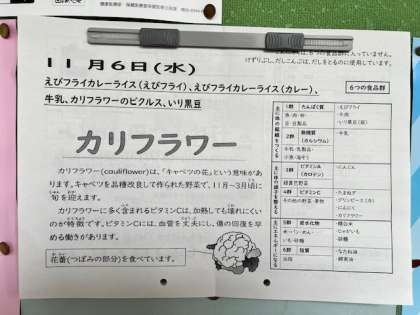 けずりぶし、だしこんぶは、だしをとるのに使用しています。
11月6日(水)
えびフライカレーライス(えびフライ)、えびフライカレーライス(カレー)、
牛乳、カリフラワーのピクルス、いり黒豆
6つの食品群
カリフラワー
カリフラワー(cauliflower)は、「キャベツの花」という意味があ
ります。キャベツを品種改良して作られた野菜で、11月~3月頃に
旬を迎えます。
カリフラワーに多く含まれるビタミンCは、加熱しても壊れにくい
のが特徴です。ビタミンCには、血管を丈夫にし、傷の回復を早
める働きがあります。
花蕾(つぼみの部分)を食べています。
主に体の組織をつくる
1群 たんぱく質
魚・肉・卵・
豆・豆製品
・えびフライ
・肉
・いり黒豆
2群 無機質
(カルシウム)
牛乳・乳製品・
小魚・海そう
・牛乳
主に体の調子を整える
3群 ビタミンA
(カロテン)
緑黄色野菜
・にんじん
4群 ビタミンC
その他の野菜・果物
・たまねぎ
・グリンピース
・にんにく
・カリフラワー
主にエネルギーになる
5群 炭水化物
米・パン・めん・
いも・砂糖
・じゃがいも
・砂糖
6群 脂質
油脂
・なたね油